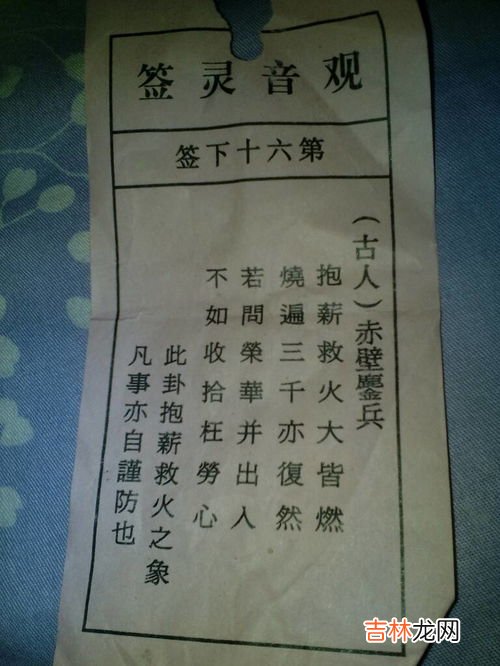 观音灵签
第六十下签
（古人）赤壁鏖兵
抱薪救火大皆燃
燒遍三千亦復然
若問榮華并出入
不如收拾枉勞心
此卦抱薪救火之象
凡事亦自謹防也
吉林龙网